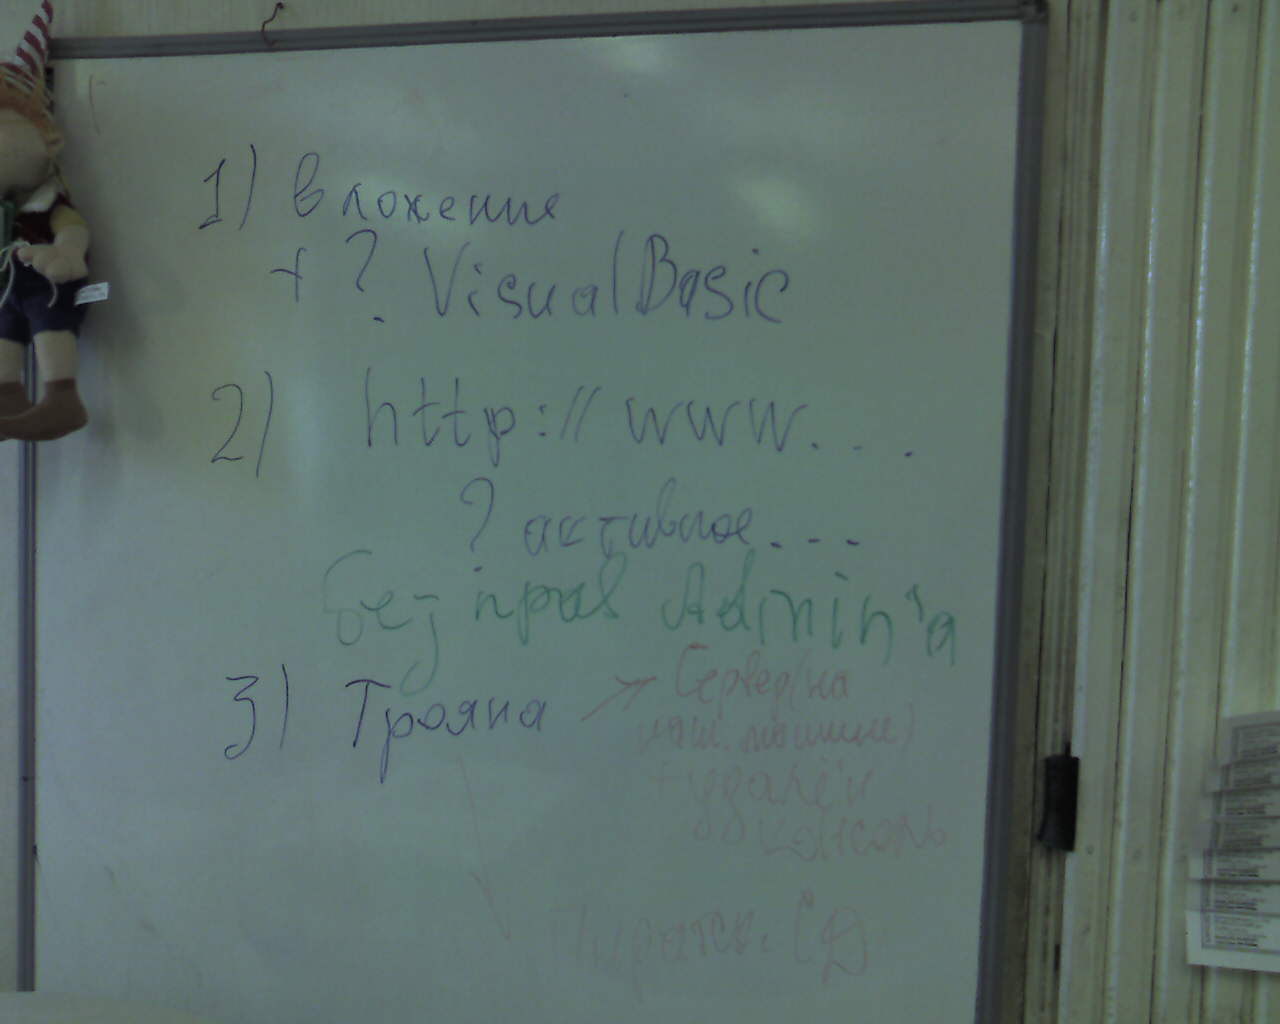 1) вложения
+ ? Visual Basic
2) http://www. . . .
? активное . . .
без прав Admin'а
3) Трояна → Сервер (на
наш. машине)
+ удалён
консоль
Пиратск. CD